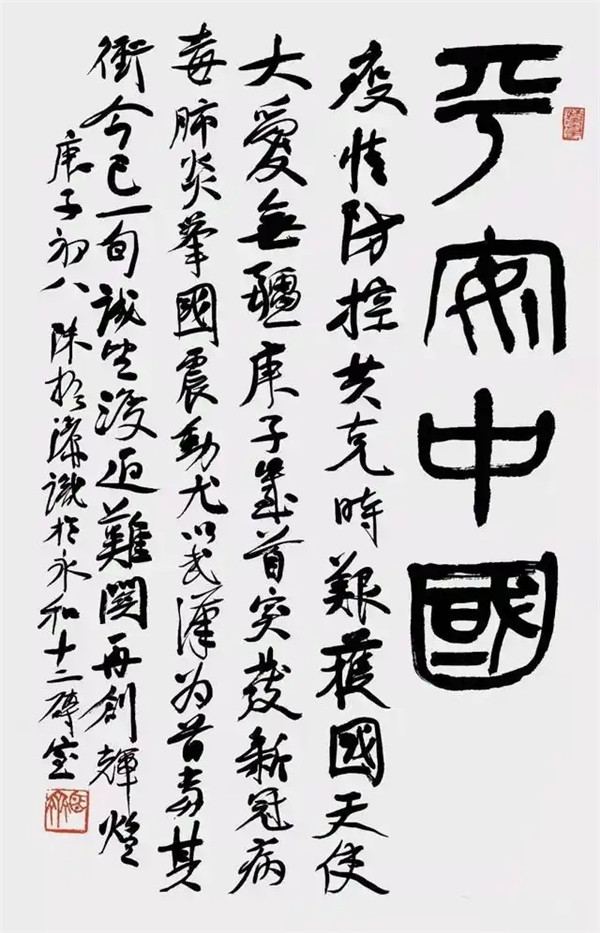 平安中國
疫情防控共克時艱蒦國天使
大愛無疆庚子歲首突發新冠病
毒肺炎舉國震動尤以武漢为首当其
衝今已一旬誠望渡过難関再創輝煌
庚子初八 陈振濂識於永和十二磚室